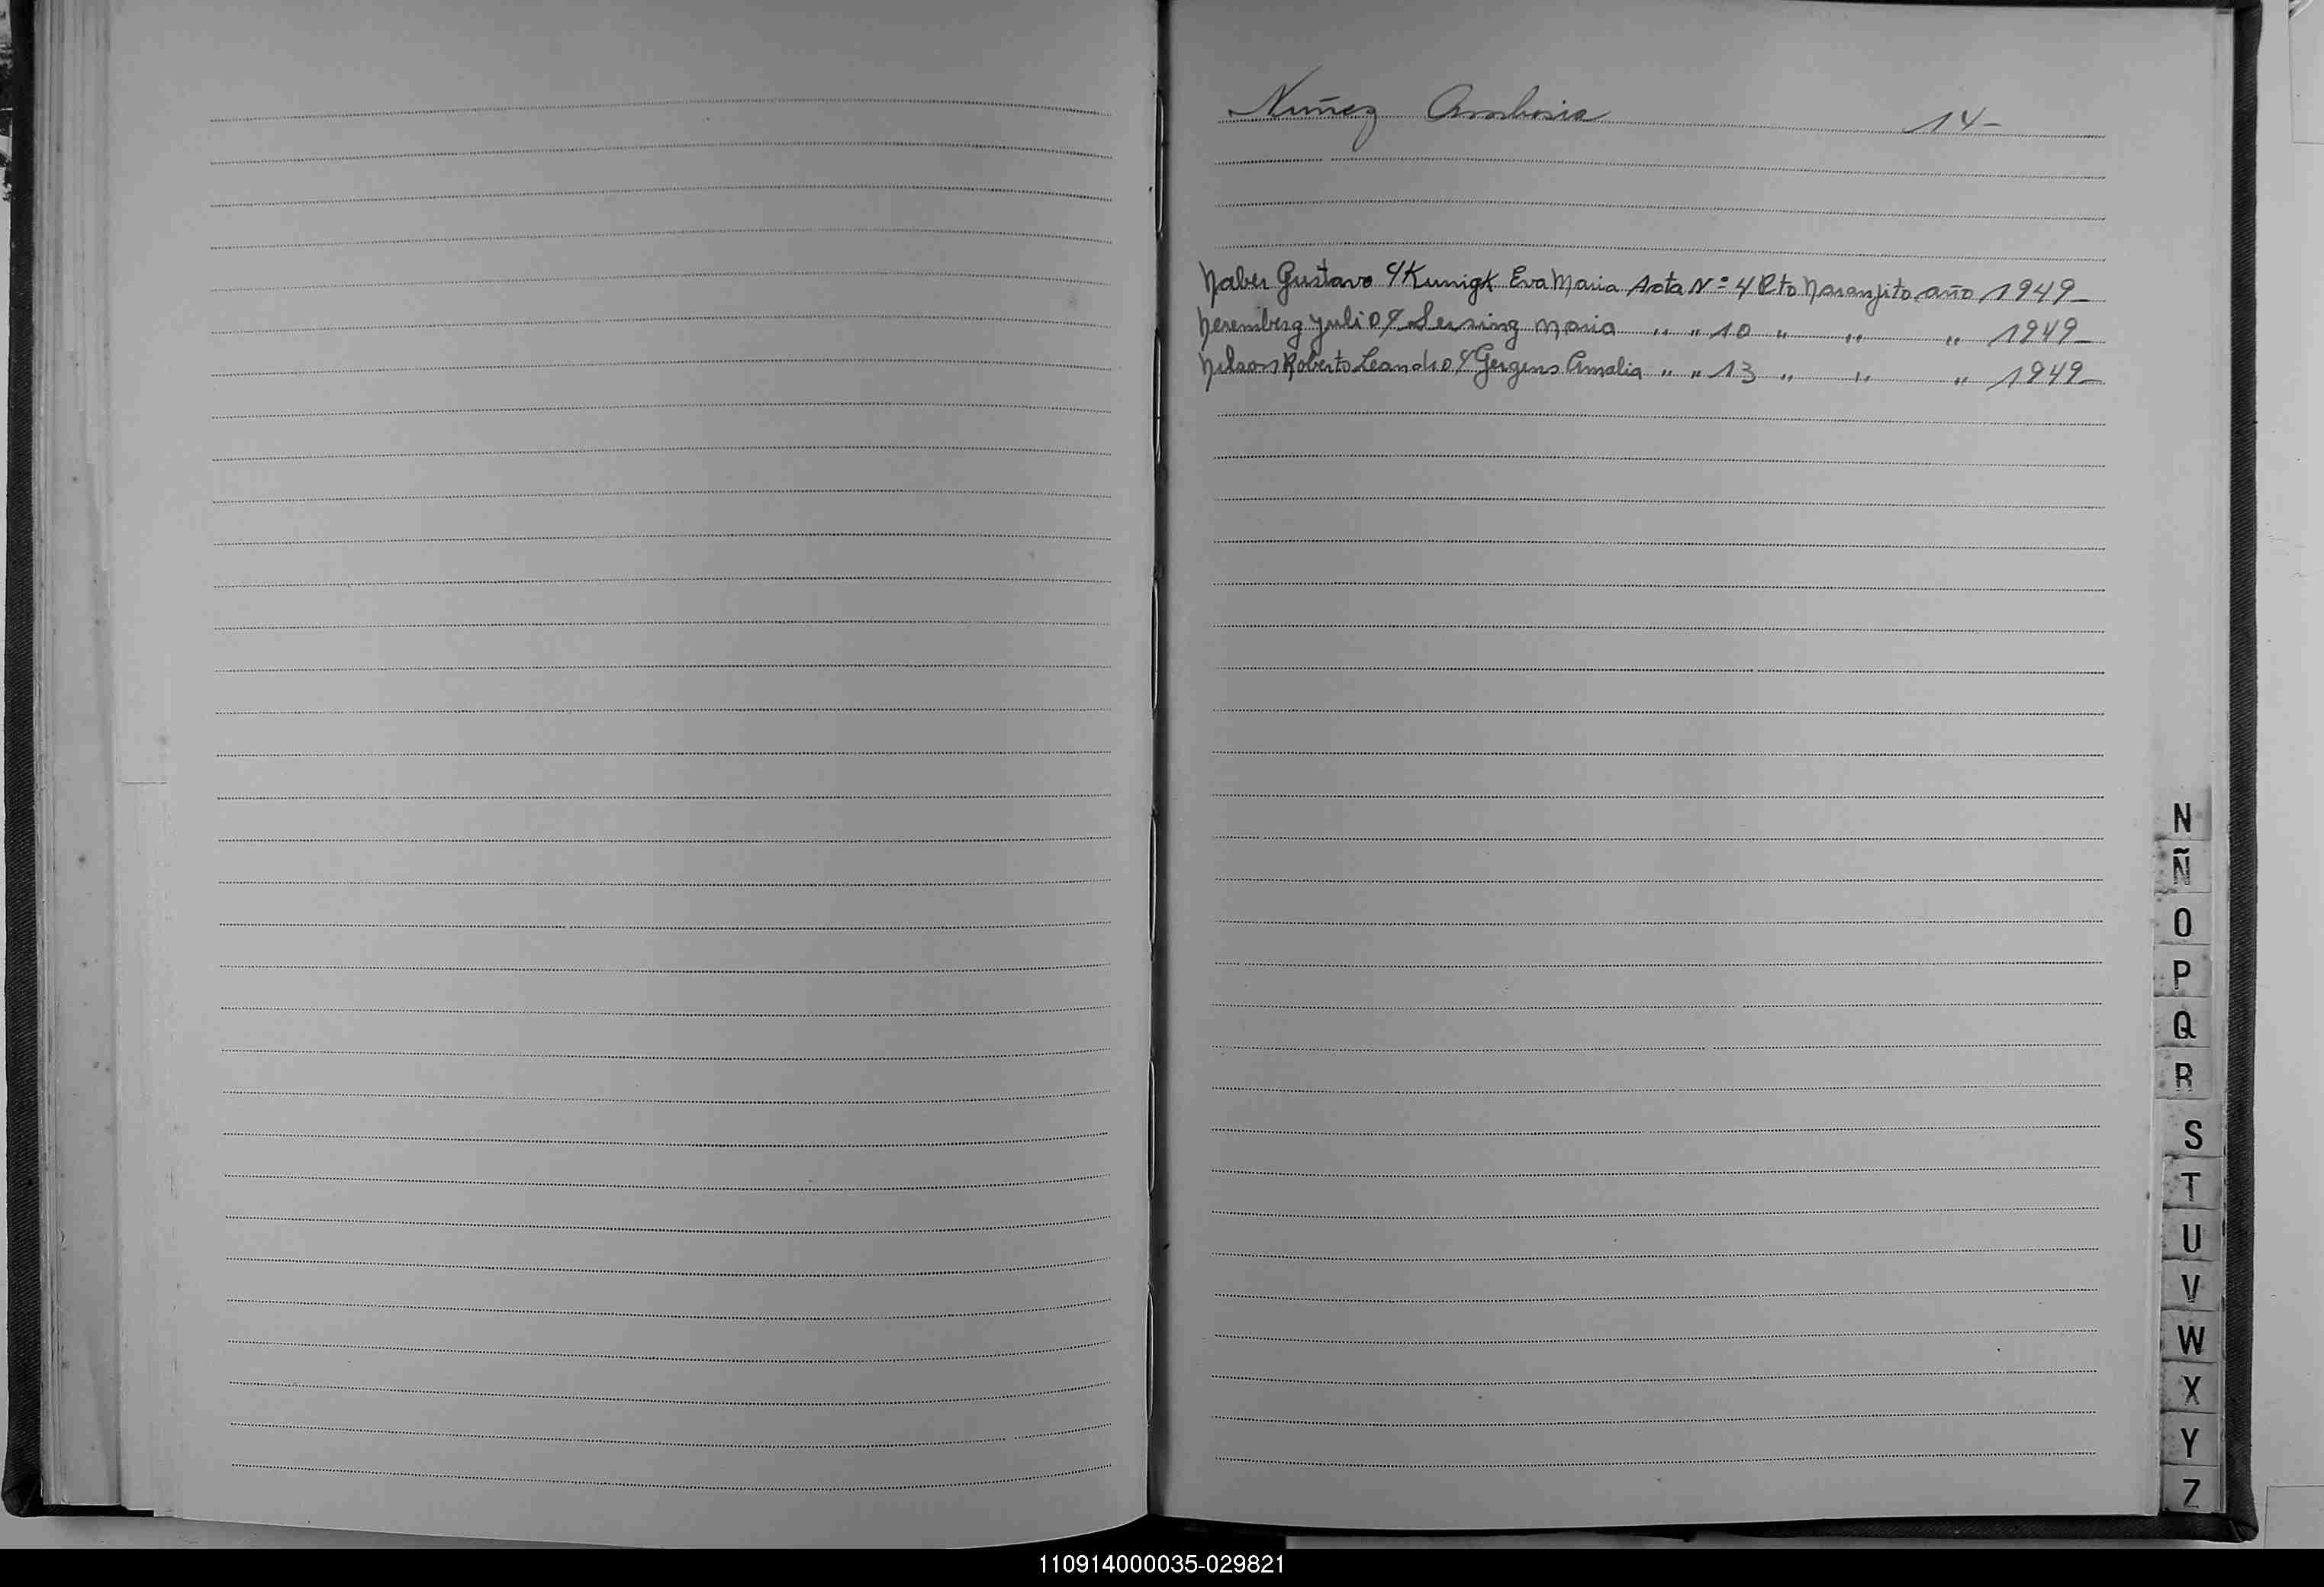 Nuñez Ambrosia 14-
Naber Gustavo c/ Kunigk Eva Maria Acta Nº 4 Pto Naranjito año 1949-
Neremberg Julio c/ Lessing Maria " " 10 " " " 1949-
Nelson Roberto Leandro c/ Gergens Amalia " " 13 " " " 1949-
N
Ñ
O
P
Q
R
S
T
U
V
W
X
Y
Z
110914000035-029821